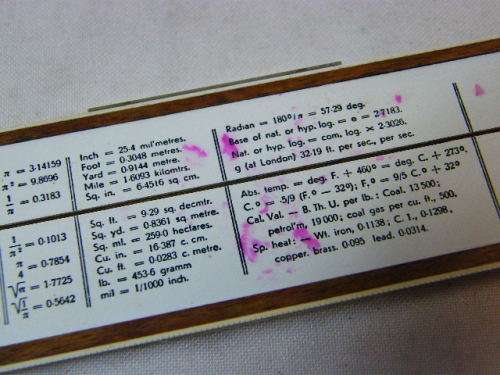 π = 3·14159
π² = 9·8696
1/π = 0·3183
Inch = 25·4 mil'metres.
Foot = 0·3048 metres.
Yard = 0·9144 metre.
Mile = 1·6093 kilomtrs.
Sq. in. = 6·4516 sq. cm.
Radian = 180°/π = 57·29 deg.
Base of nat. or hyp. log. = e = 2·7183.
Nat. or hyp. log. = com. log. × 2·3026.
g (at London) 32·19 ft. per sec., per sec.
1/π² = 0·1013
π/4 = 0·7854
√π = 1·7725
√1/π = 0·5642
Sq. ft. = 9·29 sq. decmtr.
Sq. yd. = 0·8361 sq. metre.
Sq. ml. = 259·0 hectares.
Cu. in. = 16·387 c. cm.
Cu. ft. = 0·0283 c. metre.
lb. = 453·6 gramm
mil = 1/1000 inch.
Abs. temp. = deg. F. + 460° = deg. C. + 273°,
C.° = 5/9 (F.° − 32°); F.° = 9/5 C.° + 32°
Cal. Val. — B. Th. U. per lb.: Coal, 13 500;
petrol'm, 19 000; coal gas per cu. ft., 500,
Sp. heat: — Wt. iron, 0·1138; C. I., 0·1298,
copper. brass. 0·095 lead. 0·0314.